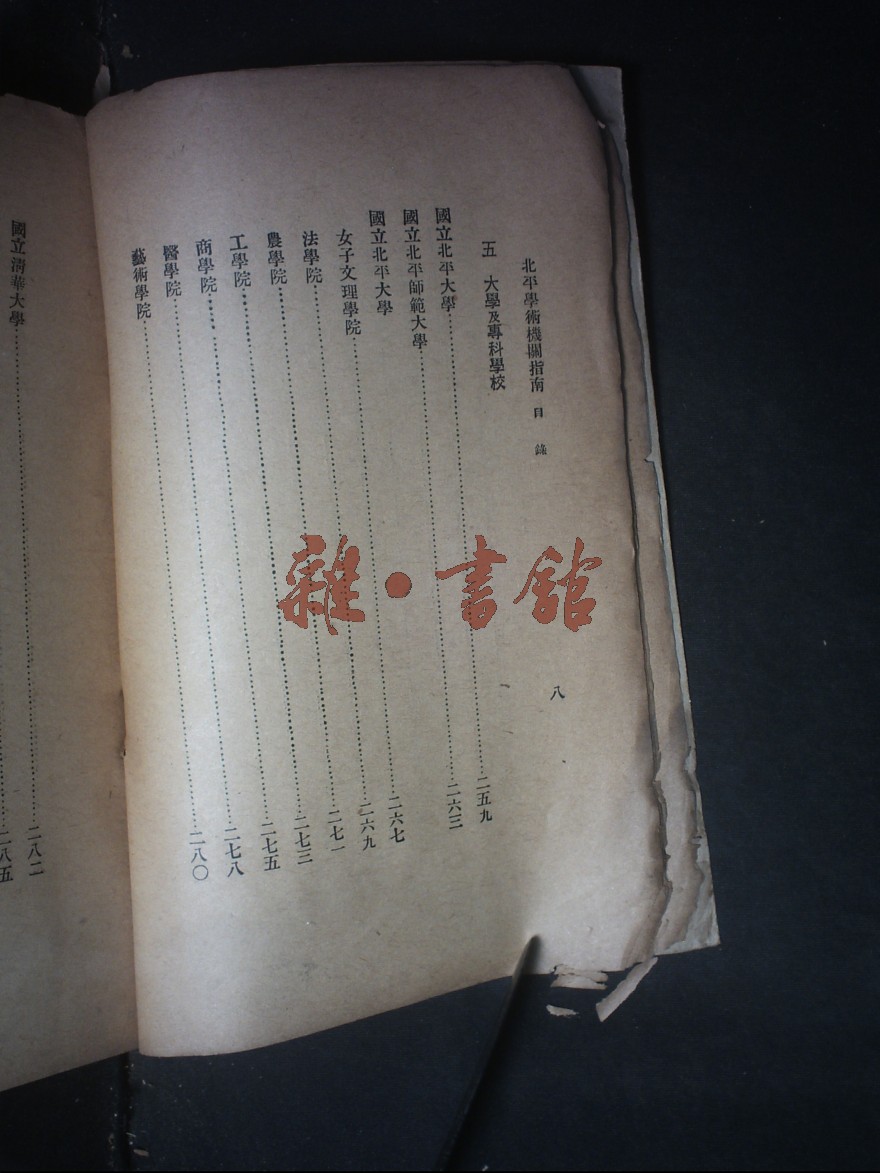 北平學術機關指南 目 錄 八
五 大學及專科學校
國立北平大學……二五九
國立北平師範大學……二六三
國立北平大學
女子文理學院……二六七
法學院……二六九
農學院……二七一
工學院……二七三
商學院……二七五
醫學院……二七八
藝術學院……二八〇
國立清華大學……二八二
……二八五
雜·書館